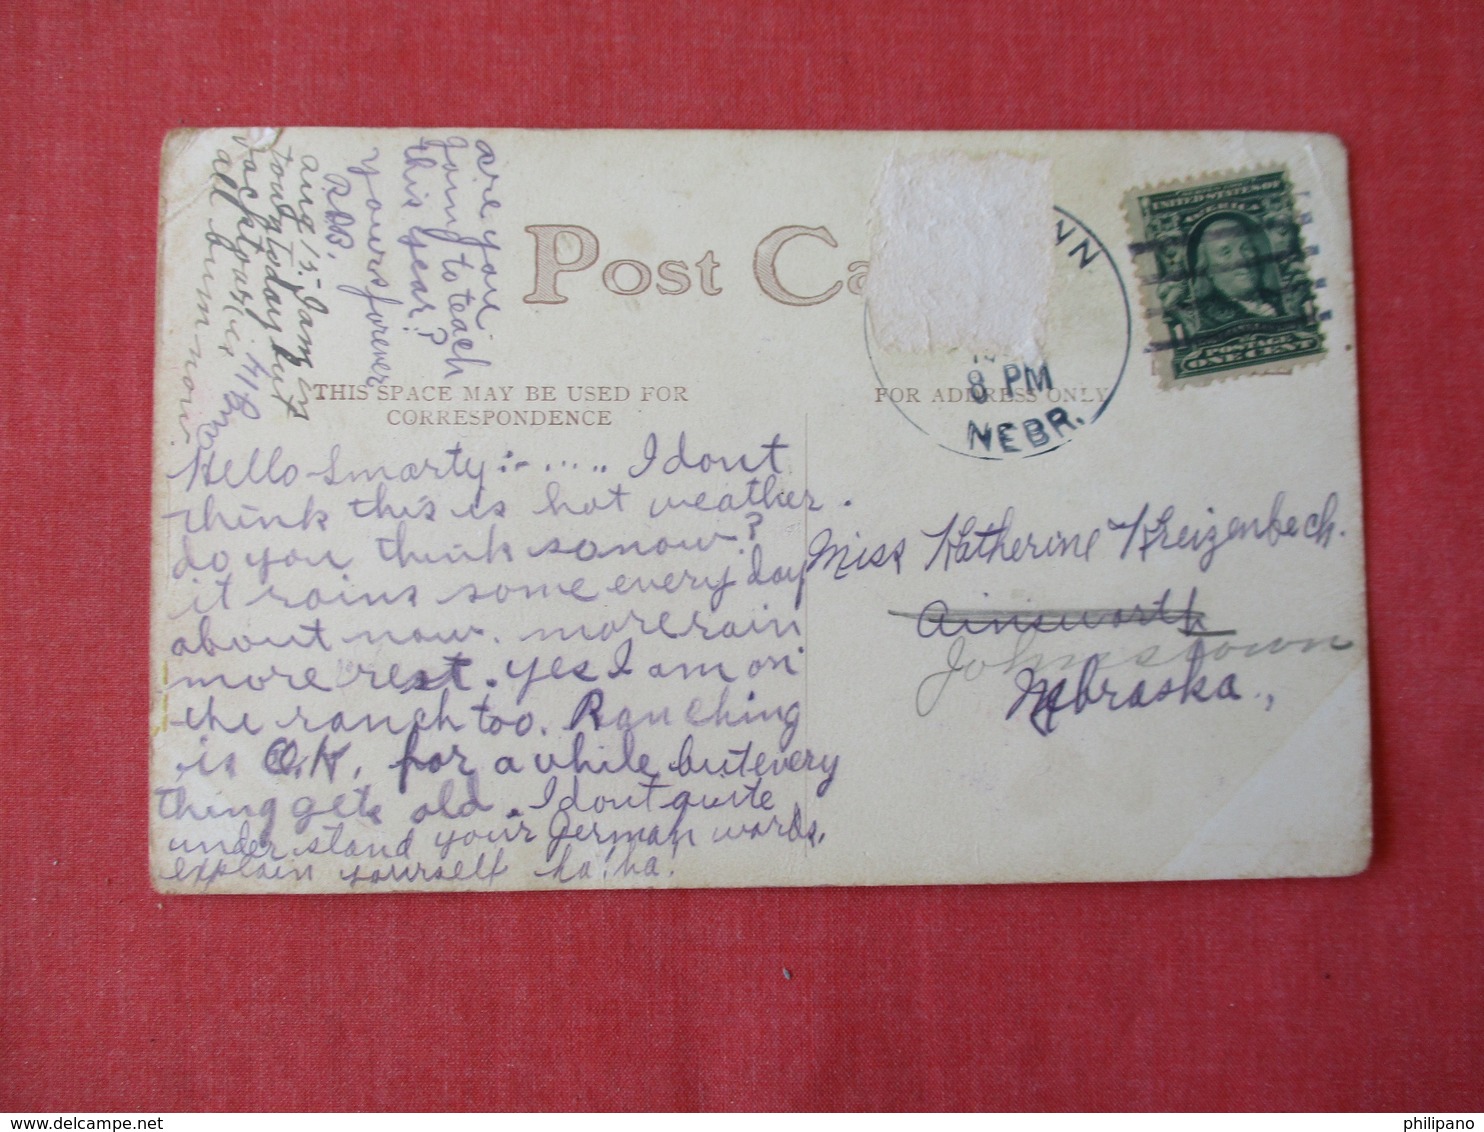 are you
going to teach
this year?
yours forever
R.B.B.
aug 15-
town today but
back
all bum now
Post Ca
THIS SPACE MAY BE USED FOR
CORRESPONDENCE
FOR ADDRESS ONLY
WN
8 PM
NEBR.
UNITED STATES OF
AMERICA
POSTAGE
ONE CENT
Hello Smarty:- ..... I dont
think this is hot weather.
do you think so now?
it rains some every day
about now. more rain
more rest. yes I am on
the ranch too. Ranching
is O.K. for a while but every
thing gets old. I dont quite
understand your German words.
explain yourself ha! ha!
Miss Katherine Kreizenbeck.
Ainsworth
Johnstown
Nebraska.,
philipano